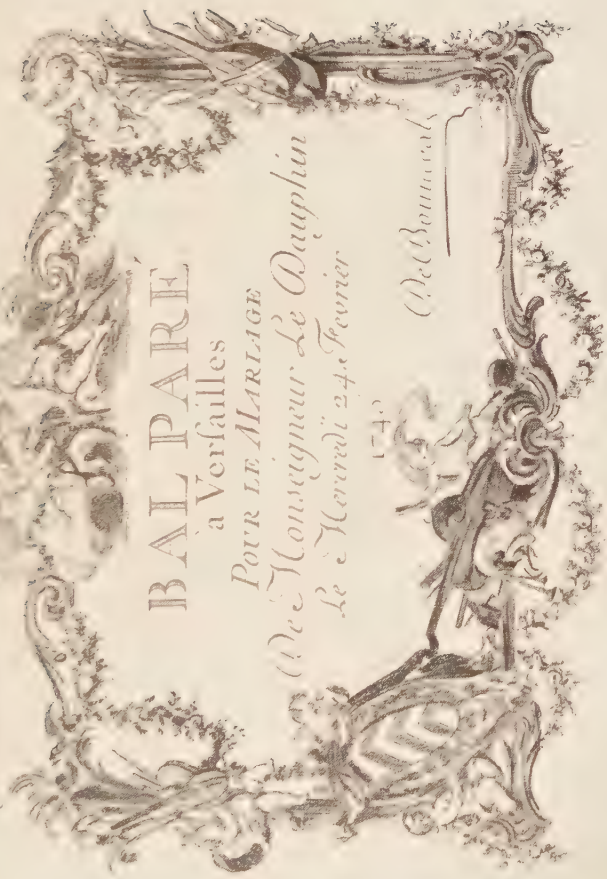 BAL PARÉ
à Verſailles
POUR LE MARIAGE
De Monseigneur Le Dauphin
Le Mercredi 24. Fevrier
De Bonneval